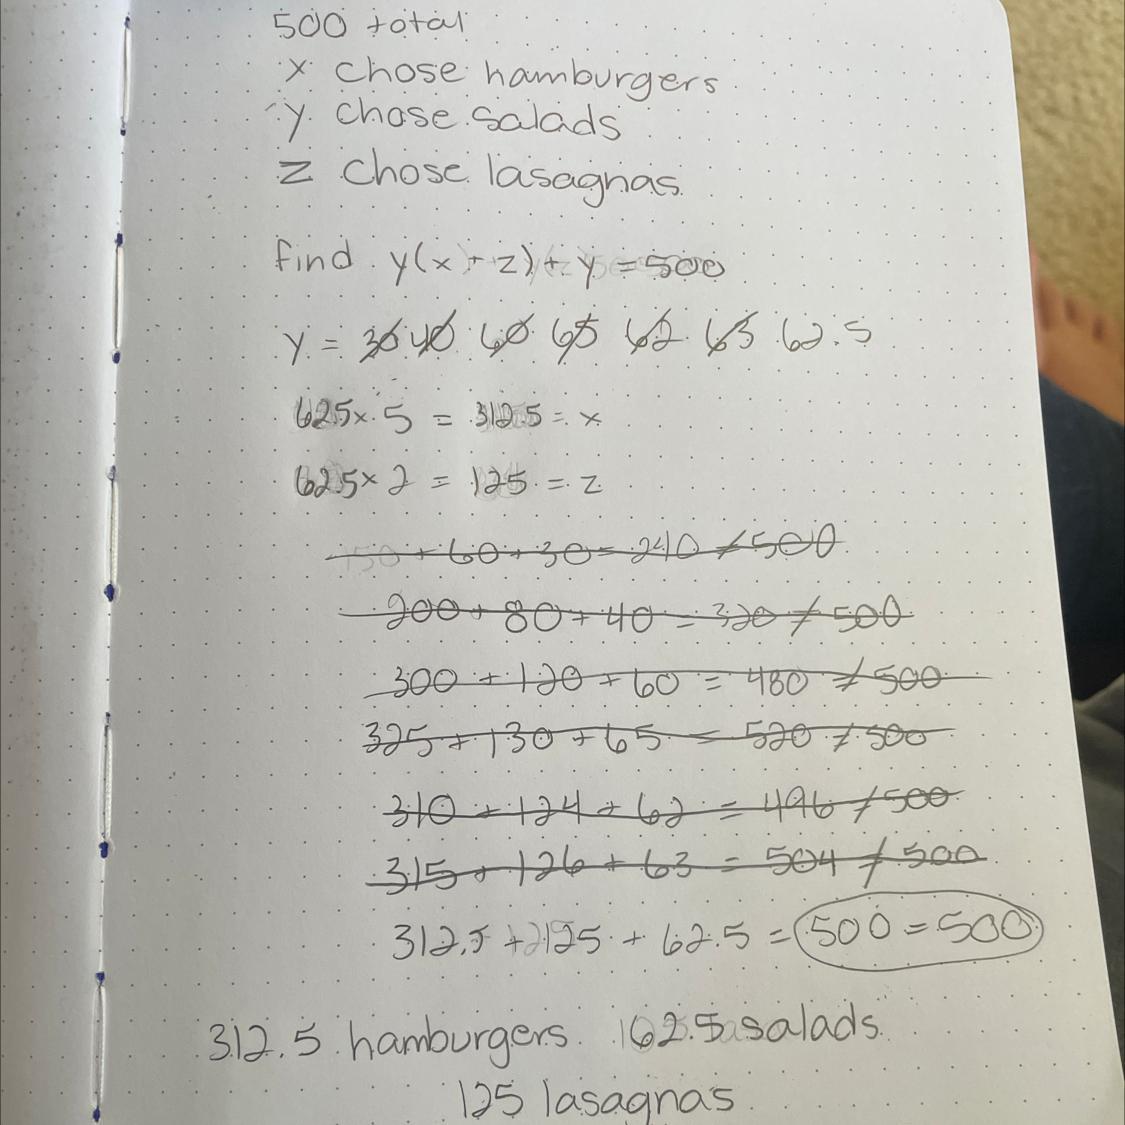 500 total
x chose hamburgers
y chose salads
z chose lasagnas
find y(x+z)+y=500
y = 30 40 60 65 62 63 62.5
62.5 x 5 = 312.5 = x
62.5 x 2 = 125 = z
150 + 60 + 30 = 240 ≠ 500
200 + 80 + 40 = 320 ≠ 500
300 + 120 + 60 = 480 ≠ 500
325 + 130 + 65 = 520 ≠ 500
310 + 124 + 62 = 496 ≠ 500
315 + 126 + 63 = 504 ≠ 500
312.5 + 125 + 62.5 = 500 = 500
312.5 hamburgers 62.5 salads
125 lasagnas